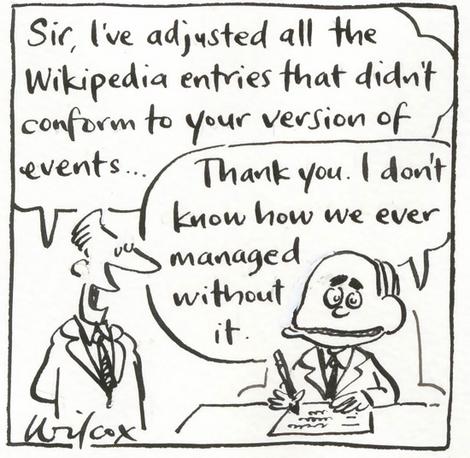 Sir, I've adjusted all the
Wikipedia entries that didn't
conform to your version of
events...
Thank you. I don't
know how we ever
managed
without
it.
Wilcox